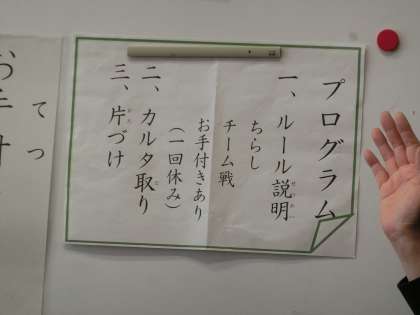 プログラム
一、ルール説明
ちらし
チーム戦
お手付きあり
（一回休み）
二、カルタ取り
三、片づけ
てつ
お手付